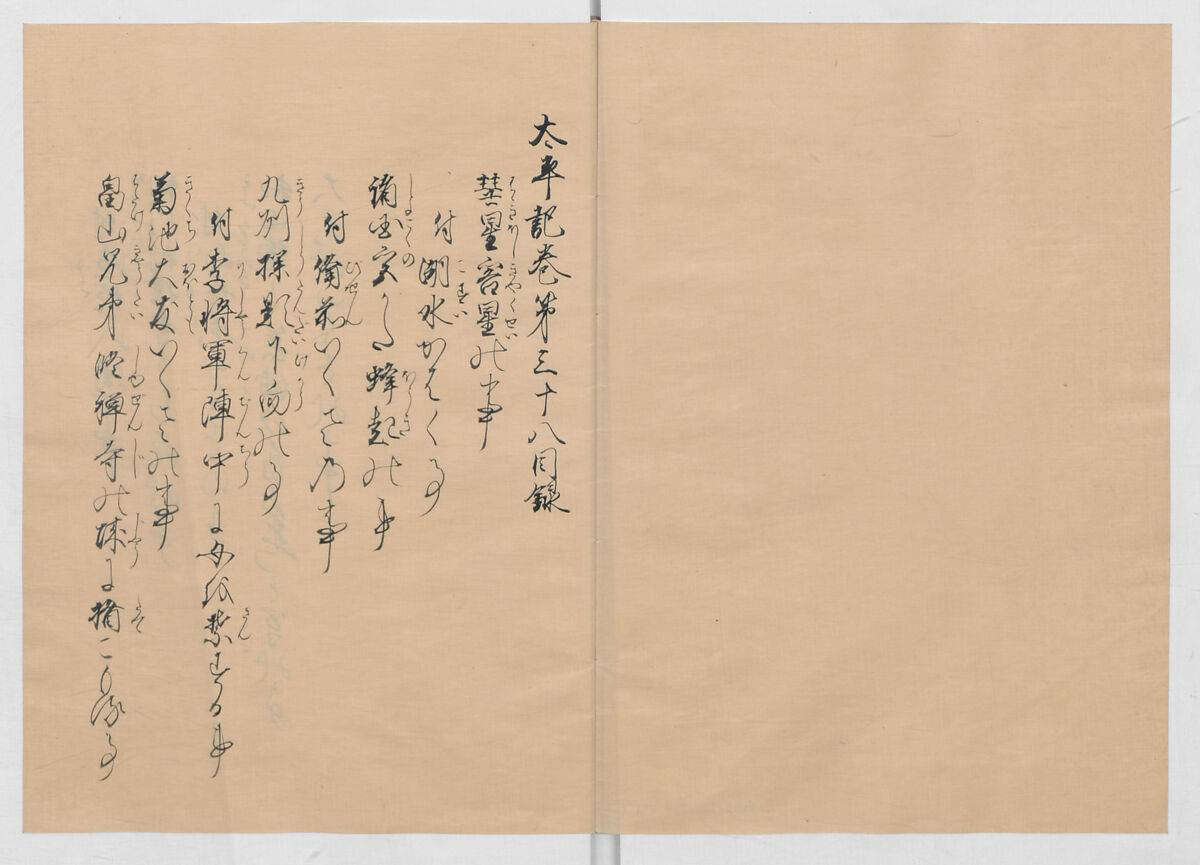 太平記巻第三十八目録
彗星客星の事
付湖水かはく事
諸国宮かた蜂起の事
付備前いくさ乃事
九州探題下向の事
付李将軍陣中に女を禁する事
菊池大友いくさの事
畠山兄弟修禅寺の城に楯こもる事